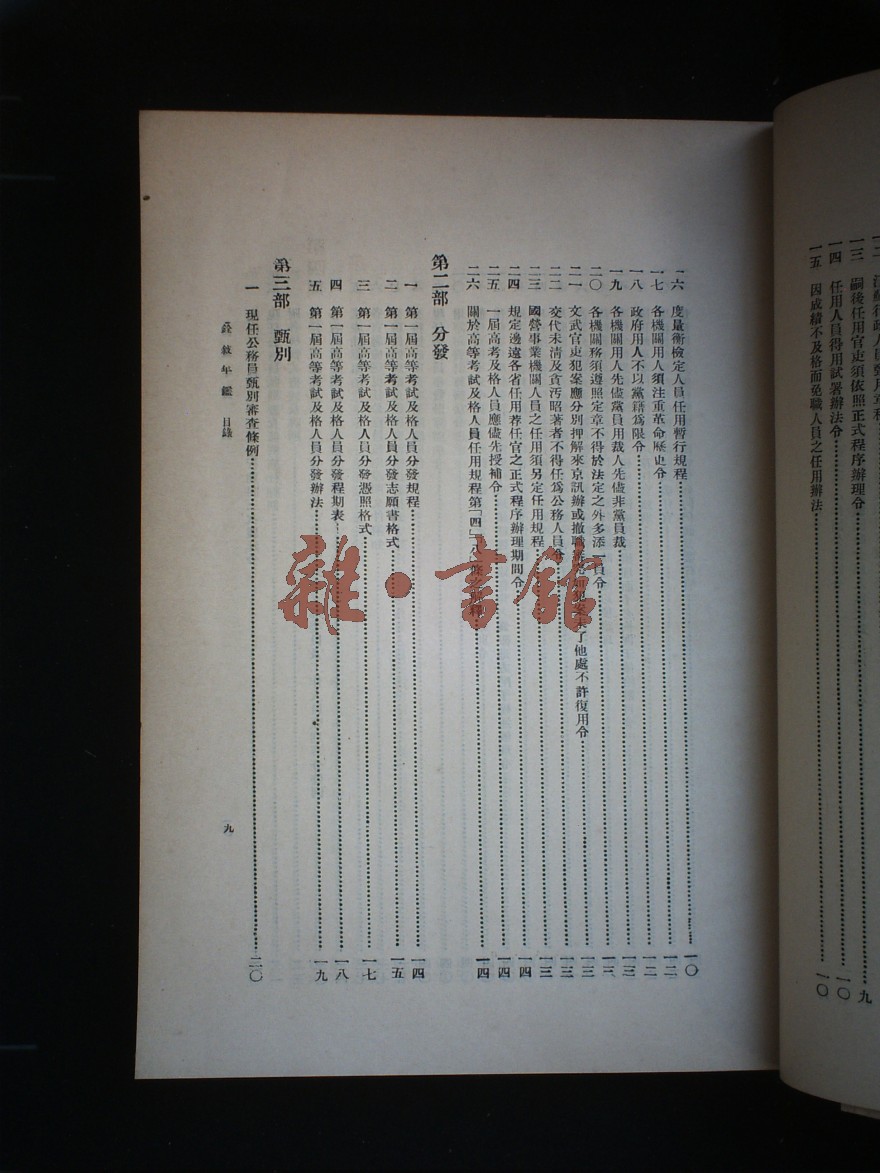 一二
一三 嗣後任用官吏須依照正式程序辦理令 九
一四 任用人員得用試署辦法令 一〇
一五 因成績不及格而免職人員之任用辦法 一〇
一六 度量衡檢定人員任用暫行規程 一〇
一七 各機關用人須注重革命歷史令 一二
一八 政府用人不以黨籍爲限令 一二
一九 各機關用人先儘黨員用裁人先儘非黨員裁 一三
二〇 各機關務須遵照定章不得於法定之外多添一員令 一三
二一 文武官吏犯案應分別押解來京訊辦或撤職 犯案未了他處不許復用令 一三
二二 交代未清及貪污昭著者不得任爲公務人員令 一三
二三 國營事業機關人員之任用須另定任用規程 一三
二四 規定邊遠各省任用荐任官之正式程序辦理期間令 一四
二五 一屆高考及格人員應儘先授補令 一四
二六 關於高等考試及格人員任用規程第「四」 一四
第二部 分發
一 第一屆高等考試及格人員分發規程 一四
二 第一屆高等考試及格人員分發志願書格式 一五
三 第一屆高等考試及格人員分發憑照格式 一七
四 第一屆高等考試及格人員分發程期表 一八
五 第一屆高等考試及格人員分發辦法 一九
第三部 甄別
一 現任公務員甄別審查條例 二〇
銓敍年鑑 目錄
九
雜·書館